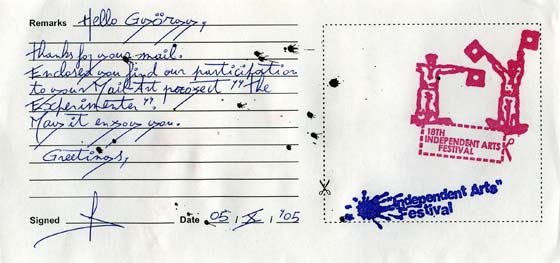 Remarks Hello
Thanks for your mail.
Enclosed you find our participation
to your Mail-Art project "The
Experimenter".
May it enjoys you.
Greetings,
Signed Date 05 / X / '05
18TH
INDEPENDENT ARTS
FESTIVAL
"Independent Arts"
Festival